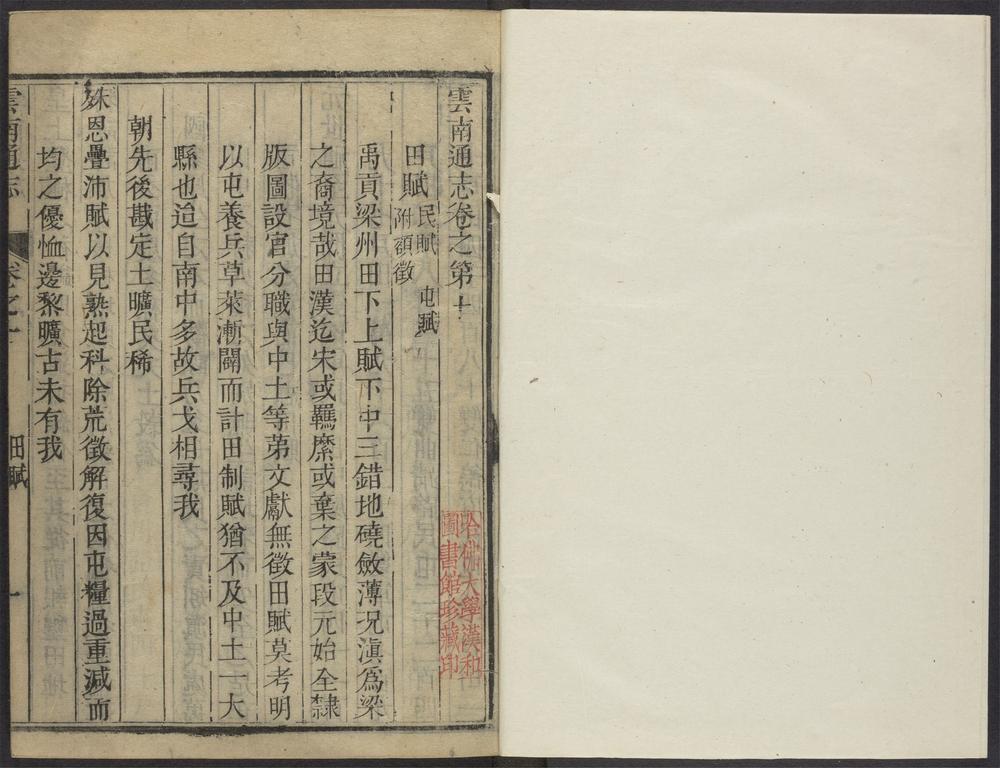 雲南通志卷之第十
田賦 民賦 屯賦
附額徵
禹貢梁州田下上賦下中三錯地磽斂薄况滇爲梁
之裔境哉田漢迄宋或羈縻或棄之蒙段元始全隸
版圖設官分職與中土等苐文獻無徵田賦莫考明
以屯養兵草萊漸闢而計田制賦猶不及中土一大
縣也迨自南中多故兵戈相尋我
朝先後戡定土曠民稀
殊恩疊沛賦以見熟起科除荒徵解復因屯糧過重減而
均之優恤邊黎曠古未有我
雲南通志 卷之十 田賦 一
哈佛大學漢和
圖書館珍藏印